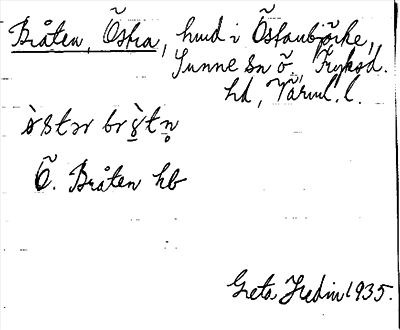 Bråten, Östra, hmd i Östanbjörke,
Sunne sn ö., Fryksd.
hd, Värml. l.
òstər br&#596;̀tn̥
Ö. Bråten hb
Greta Hedin 1935.